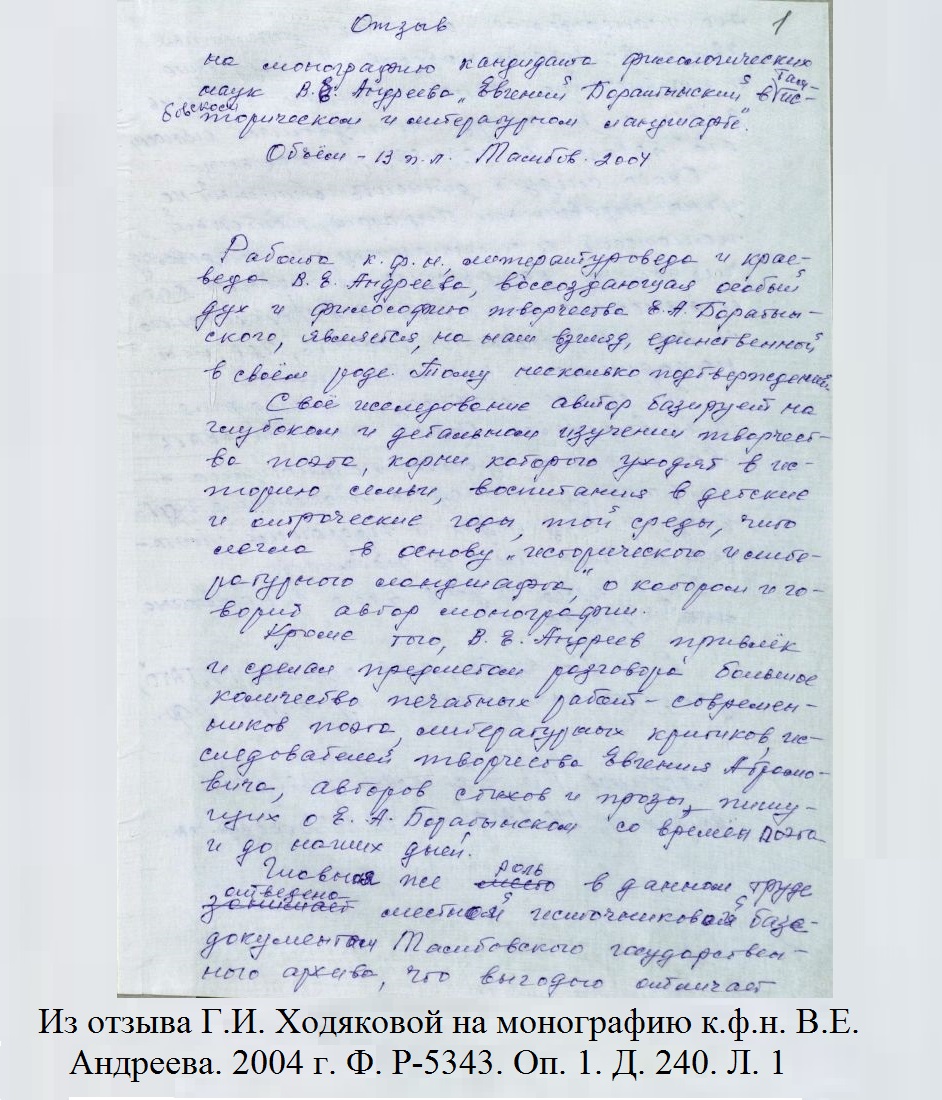 Отзыв
1
на монографию кандидата филологических
наук В.Е. Андреева „Евгений Боратынский в Там-
бовском ис-
торическом и литературном ландшафте".
Объём – 13 п.л. Тамбов. 2004
Работа к.ф.н., литературоведа и крае-
веда В.Е. Андреева, воссоздающая особый
дух и философию творчества Е.А. Боратын-
ского, является, на наш взгляд, единственной
в своём роде. Тому несколько подтверждений.
Своё исследование автор базирует на
глубоком и детальном изучении творчест-
ва поэта, корни которого уходят в ис-
торию семьи, воспитания в детские
и отроческие годы, той среды, что
легла в основу „исторического и лите-
ратурного ландшафта", о котором и го-
ворит автор монографии.
Кроме того, В.Е. Андреев привлёк
и сделал предметом разговора большое
количество печатных работ – современ-
ников поэта, литературных критиков, ис-
следователей творчества Евгения Абрамо-
вича, авторов стихов и прозы, пишу-
щих о Е.А. Боратынском со времён поэта
и до наших дней.
Главная же место роль в данном труде
занимает отведена местной источниковой базе –
документам Тамбовского государствен-
ного архива, что выгодно отличает
Из отзыва Г.И. Ходяковой на монографию к.ф.н. В.Е.
Андреева. 2004 г. Ф. Р-5343. Оп. 1. Д. 240. Л. 1